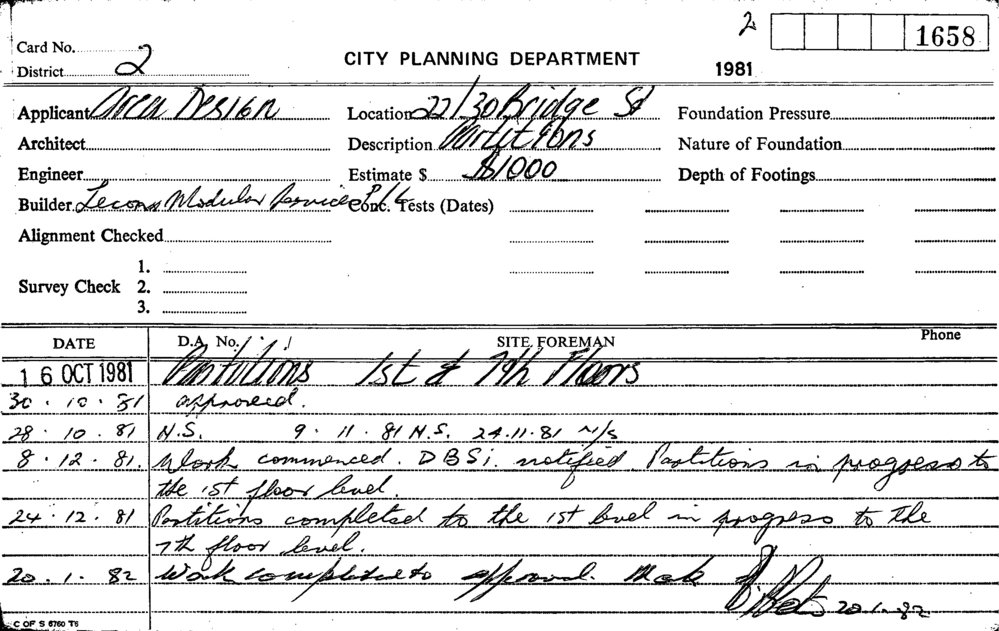 2 1658
Card No. 2
District 2 CITY PLANNING DEPARTMENT 1981
Applicant Area Design Location 22/30 Bridge St Foundation Pressure
Architect Description Partitions Nature of Foundation
Engineer Estimate $ $1000 Depth of Footings
Builder Modular Services P/L Conc. Tests (Dates)
Alignment Checked
1.
Survey Check 2.
3.
DATE D.A. No. SITE FOREMAN Phone
16 OCT 1981 Partitions 1st & 7th Floors
30.10.81 approved.
28.10.81 N.S. 9.11.81 N.S. 24.11.81 N/S
8.12.81. Work commenced. DBSi. notified. Partitions in progress to
the 1st floor level.
24.12.81 Partitions completed to the 1st level in progress to the
7th floor level.
20.1.82 Work completed to approval. 20.1.82
C OF S 6760 T6